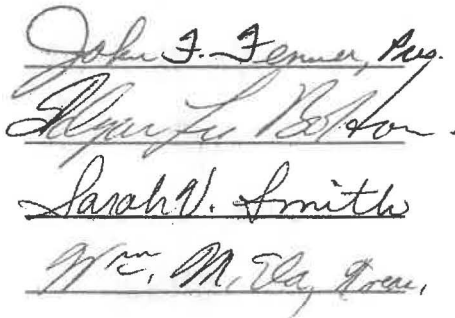 John F. Fenner, Pres.
Edgar Lee Bolton
Sarah V. Smith
Wm. M. Treas.